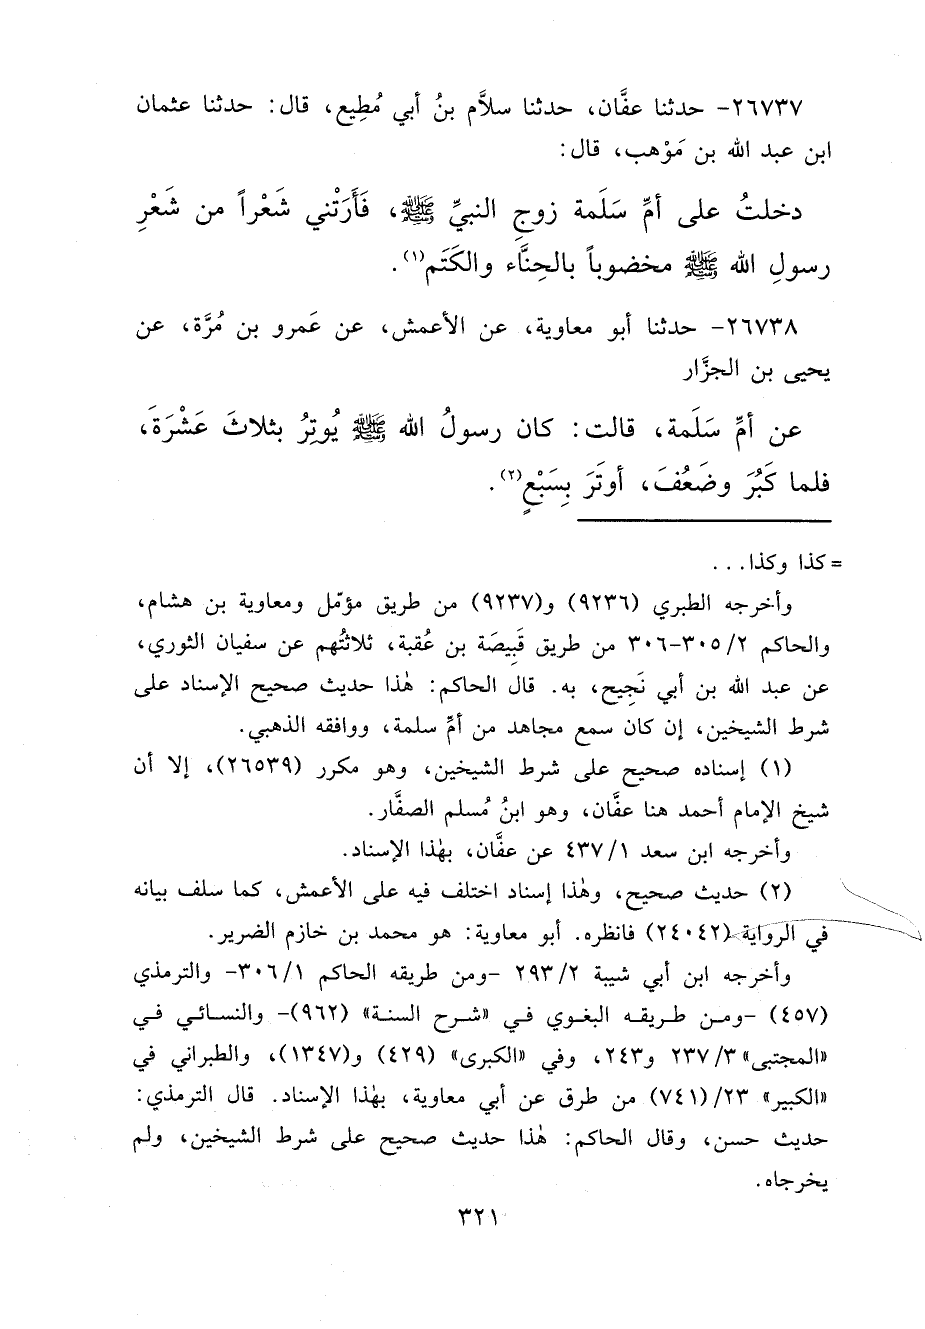 ٢٦٧٣٧- حدثنا عفَّان، حدثنا سلاَّم بنُ أبي مُطِيع، قال: حدثنا عثمان
ابن عبد الله بن مَوْهب، قال:
دخلتُ على أمِّ سَلَمة زوجِ النبيِّ ﷺ، فَأَرَتْني شَعْراً من شَعْرِ
رسولِ الله ﷺ مخضوباً بالحِنَّاء والكَتَم(١).
٢٦٧٣٨- حدثنا أبو معاوية، عن الأعمش، عن عَمرو بن مُرَّة، عن
يحيى بن الجزَّار
عن أمِّ سَلَمة، قالت: كان رسولُ الله ﷺ يُوتِرُ بثلاثَ عَشْرَةَ،
فلما كَبُرَ وضَعُفَ، أوتَرَ بِسَبْعٍ(٢).
= كذا وكذا...
وأخرجه الطبري (٩٢٣٦) و(٩٢٣٧) من طريق مؤمّل ومعاوية بن هشام،
والحاكم ٣٠٥/٢-٣٠٦ من طريق قَبِيصَة بن عُقبة، ثلاثتُهم عن سفيان الثوري،
عن عبد الله بن أبي نَجِيح، به. قال الحاكم: هٰذا حديث صحيح الإسناد على
شرط الشيخين، إن كان سمع مجاهد من أمِّ سلمة، ووافقه الذهبي.
(١) إسناده صحيح على شرط الشيخين، وهو مكرر (٢٦٥٣٩)، إلا أن
شيخ الإمام أحمد هنا عفَّان، وهو ابنُ مُسلم الصفَّار.
وأخرجه ابن سعد ٤٣٧/١ عن عفَّان، بهٰذا الإسناد.
(٢) حديث صحيح، وهٰذا إسناد اختلف فيه على الأعمش، كما سلف بيانه
في الرواية (٢٤٠٤٢) فانظره. أبو معاوية: هو محمد بن خازم الضرير.
وأخرجه ابن أبي شيبة ٢٩٣/٢ -ومن طريقه الحاكم ٣٠٦/١- والترمذي
(٤٥٧) -ومن طريقه البغوي في «شرح السنة» (٩٦٢)- والنسائي في
«المجتبى» ٢٣٧/٣ و٢٤٣، وفي «الكبرى» (٤٢٩) و(١٣٤٧)، والطبراني في
«الكبير» ٢٣/(٧٤١) من طرق عن أبي معاوية، بهٰذا الإسناد. قال الترمذي:
حديث حسن، وقال الحاكم: هٰذا حديث صحيح على شرط الشيخين، ولم
يخرجاه.
٣٢١